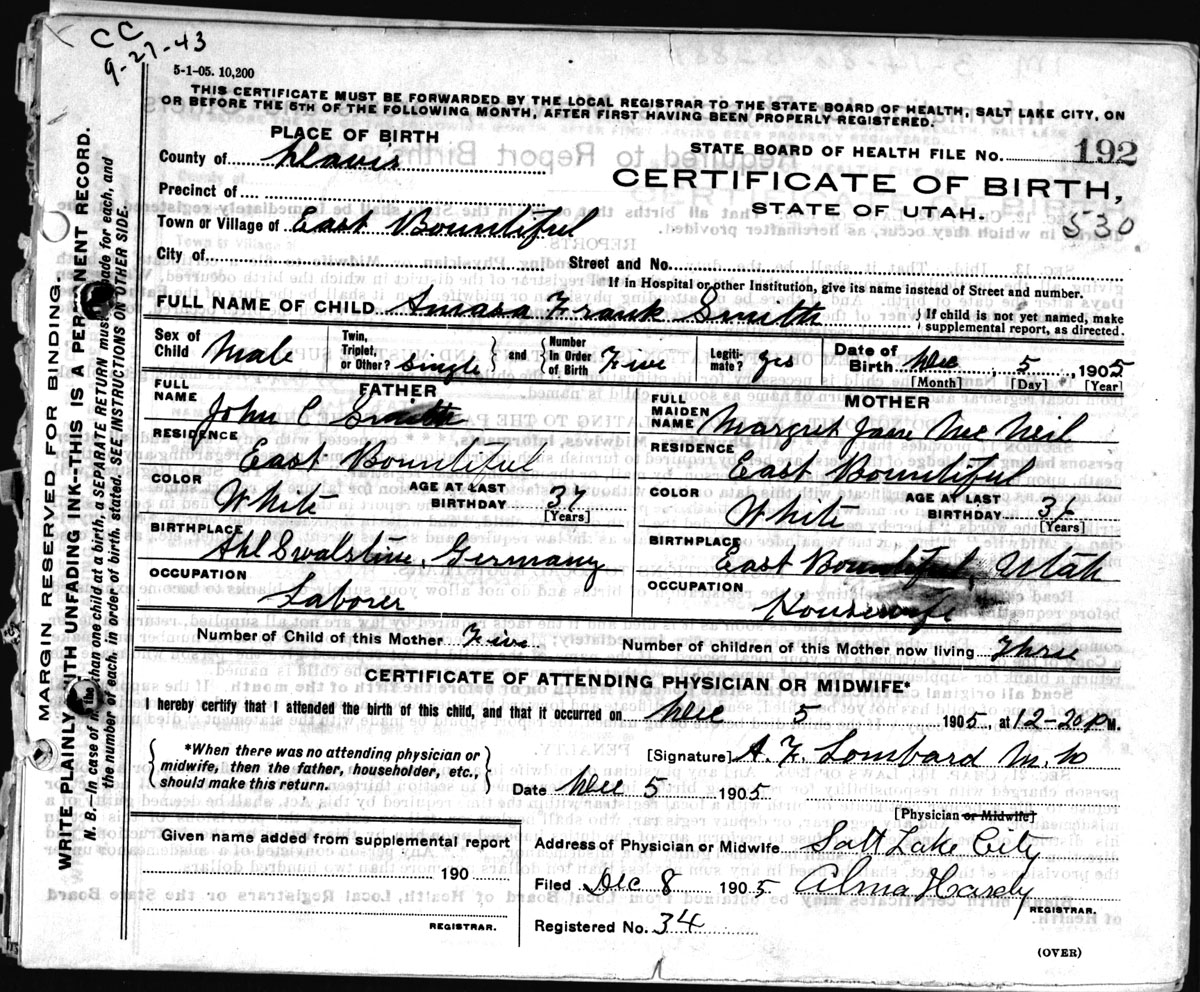 CC
9-27-43
5-1-05. 10,200
THIS CERTIFICATE MUST BE FORWARDED BY THE LOCAL REGISTRAR TO THE STATE BOARD OF HEALTH, SALT LAKE CITY, ON
OR BEFORE THE 5TH OF THE FOLLOWING MONTH, AFTER FIRST HAVING BEEN PROPERLY REGISTERED.
PLACE OF BIRTH
STATE BOARD OF HEALTH FILE No. 192
County of Davis
CERTIFICATE OF BIRTH,
Precinct of
STATE OF UTAH.
530
Town or Village of East Bountiful
City of
Street and No.
If in Hospital or other Institution, give its name instead of Street and number.
FULL NAME OF CHILD Amasa Frank Smith
If child is not yet named, make
supplemental report, as directed.
Sex of Child Male
Twin, Triplet, or Other? Single
and
Number In Order of Birth Five
Legiti- mate? yes
Date of Birth Dec 5 1905
[Month] [Day] [Year]
FATHER
FULL NAME John E Smith
RESIDENCE
East Bountiful
COLOR White
AGE AT LAST BIRTHDAY 37
[Years]
BIRTHPLACE
Germany
OCCUPATION
Laborer
MOTHER
FULL MAIDEN NAME Margret Jane Mc Neil
RESIDENCE
East Bountiful
COLOR White
AGE AT LAST BIRTHDAY
[Years]
BIRTHPLACE
East Bountiful, Utah
OCCUPATION
Housewife
Number of Child of this Mother Five
Number of children of this Mother now living Three
CERTIFICATE OF ATTENDING PHYSICIAN OR MIDWIFE*
I hereby certify that I attended the birth of this child, and that it occurred on Dec 5 1905, at 12-20 P M.
*When there was no attending physician or
midwife, then the father, householder, etc.,
should make this return.
[Signature] A. F. Lombard M. D
Date Dec 5 1905
[Physician or Midwife]
Given name added from supplemental report
190
REGISTRAR.
Address of Physician or Midwife Salt Lake City
Filed Dec 8 1905 Alma Hardy
REGISTRAR.
Registered No. 34
(OVER)
MARGIN RESERVED FOR BINDING.
WRITE PLAINLY WITH UNFADING INK--THIS IS A PERMANENT RECORD.
N. B.--In case of more than one child at a birth, a SEPARATE RETURN must be made for each, and
the number of each, in order of birth, stated. SEE INSTRUCTIONS ON OTHER SIDE.